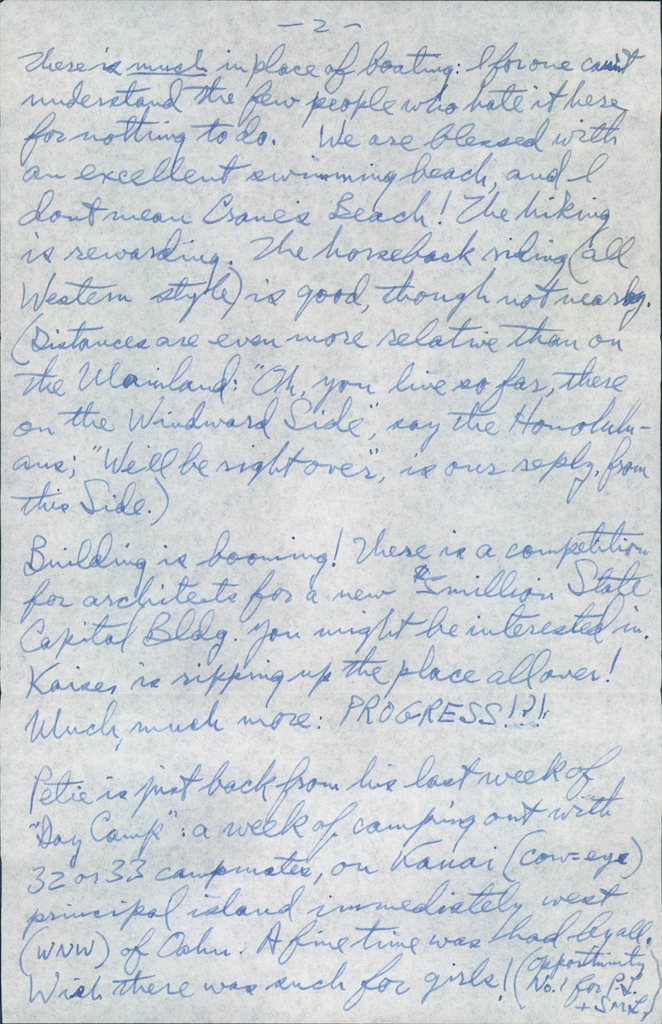 - 2 -
There is much in place of boating: I for one can't
understand the few people who hate it here
for nothing to do. We are blessed with
an excellent swimming beach, and I
dont mean Crane's Beach! The hiking
is rewarding. The horseback riding (all
Western style) is good, though not nearby.
(Distances are even more relative than on
the Mainland: "Oh, you live so far, there
on the Windward Side", say the Honolulu-
ans; "We'll be right over", is our reply, from
this Side.)
Building is booming! There is a competition
for architects for a new $5million State
Capital Bldg. you might be interested in.
Kaiser is ripping up the place all over!
Much, much more: PROGRESS!?!
Petie is just back from his last week of
"Day Camp": a week of camping out with
32 or 33 campmates, on Kauai (cow=eye)
principal island immediately west
(WNW) of Oahu. A fine time was had by all.
Wish there was such for girls! (Opportunity
No. 1 for P.L.
+ S.M.L.)